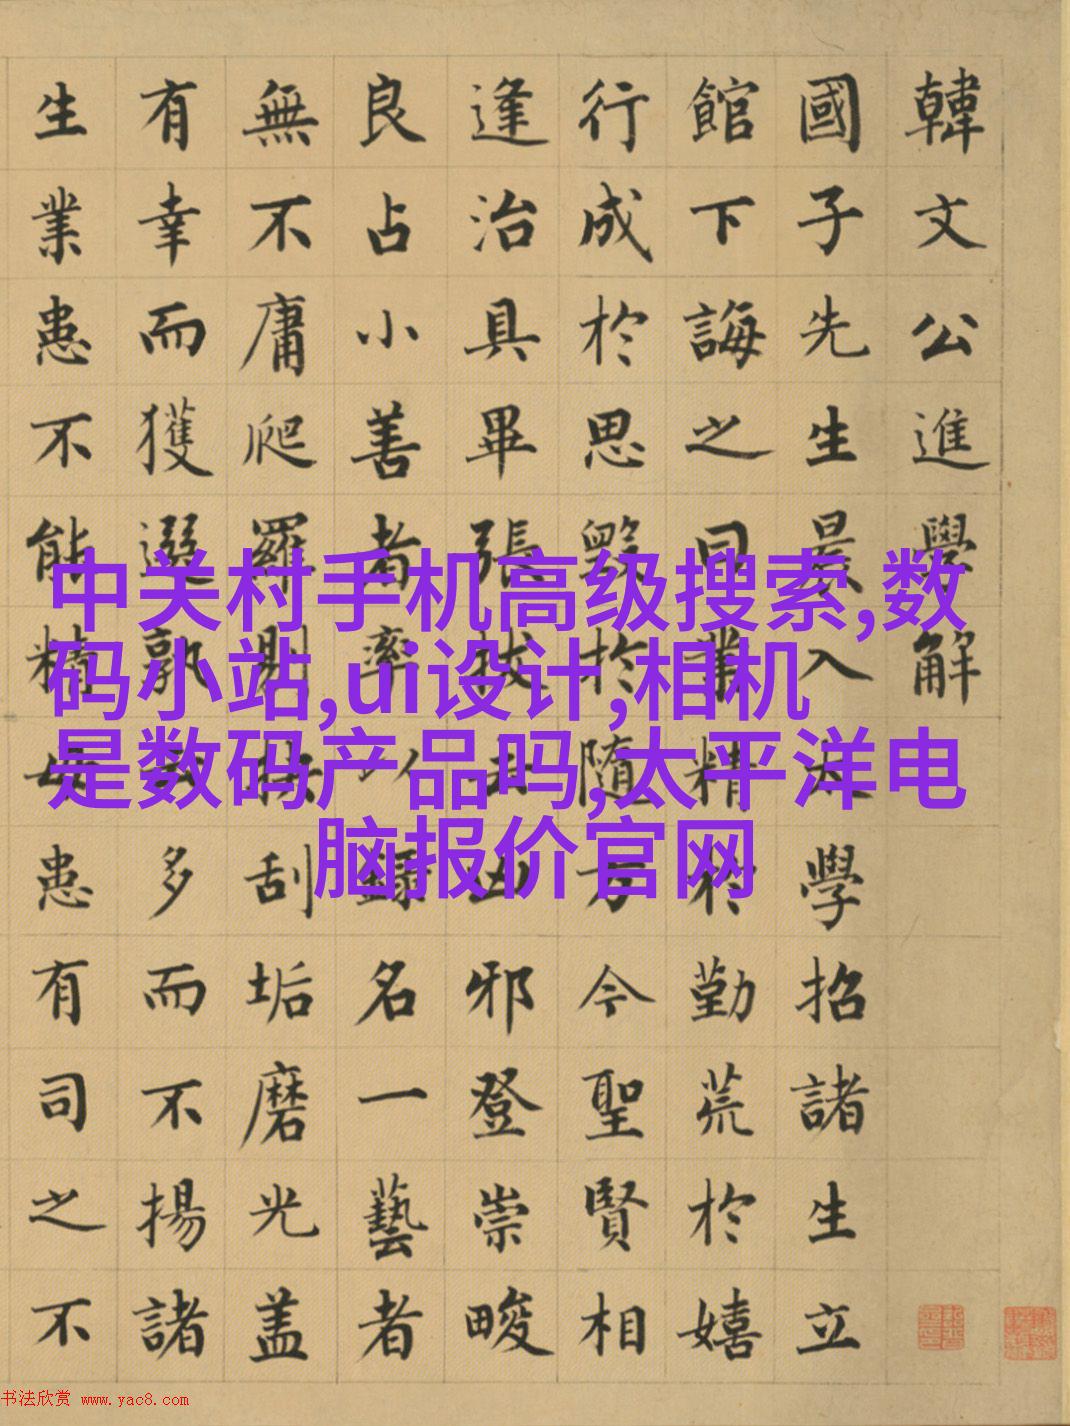 韓文公進學解
國子先生晨入太學招諸生立
館下誨之曰業精於勤荒於嬉
行成於思毀於隨方今聖賢相
逢治具畢張拔去凶邪登崇畯
良占小善者率以錄名一藝者
無不庸爬羅剔抉刮垢磨光盖
有幸而獲選孰云多而不揚諸
生業患不能精毋患有司之不
中关村手机高级搜索,数
码小站,ui设计,相机
是数码产品吗,太平洋电
脑报价官网
书法欣赏 www.yac8.com